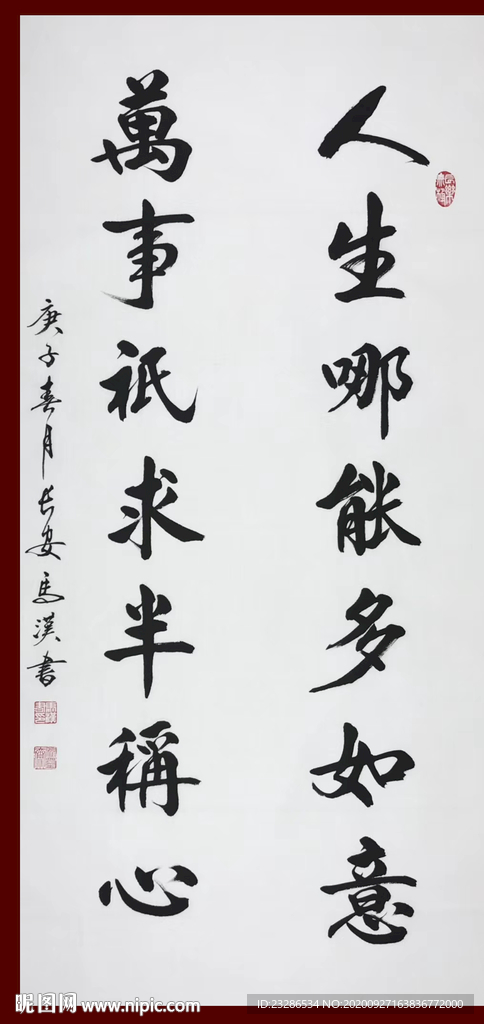 人生哪能多如意
萬事祇求半稱心
庚子春月長安馬漢書
昵图网 www.nipic.com
ID:23286534 NO:20200927163836772000